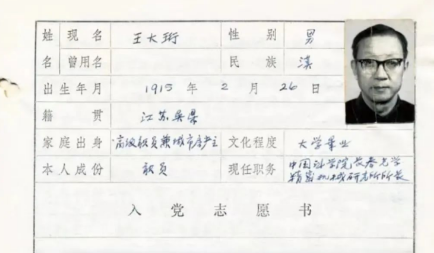 姓 现名 王大珩 性别 男
名 曾用名 民族 汉
出生年月 1915年2月26日
籍贯 江苏吴县
家庭出身 高级职员兼城市房产主 文化程度 大学毕业
本人成份 职员 现任职务 中国科学院长春光学
精密机械研究所所长
入党志愿书